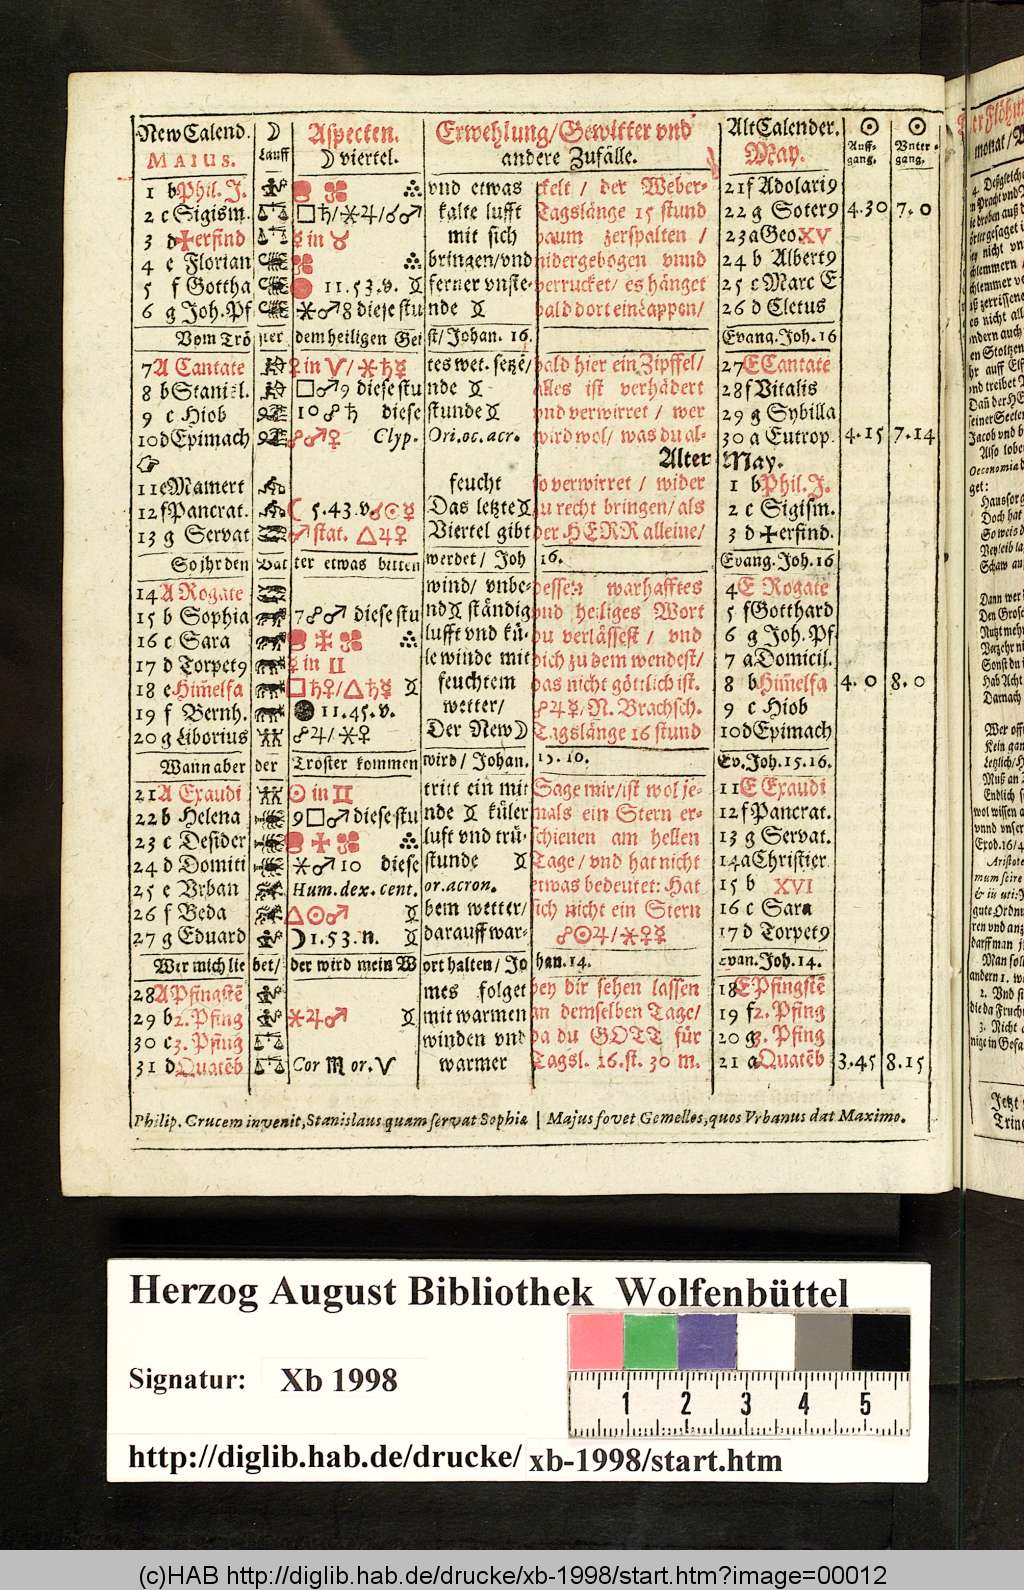 New Calend. ☽ Aspecten. Erwehlung/Gewitter vnd Alt Calender. ☉ ☉
MAIUS. Lauff ☽ viertel. andere Zufälle. May. Auff-gang. Vnter-gang.
1 b Phil. J. vnd etwas ckelt / der Weber- 21 f Adolari9
2 c Sigism. □♄/⚹♃/☌♂ kalte lufft Tagslänge 15 stund 22 g Soter9 4.30 7.0
3 d ✠erfind ☿ in ♉ mit sich baum zerspalten / 23 a Geo XV
4 e Florian bringen/vnd nidergebogen vnnd 24 b Albert9
5 f Gottha 11.53.v. ferner vnste- verrucket/ es hänget 25 c Marc E
6 g Joh. Pf ⚹♂8 diese stunde bald dort ein Lappen/ 26 d Cletus
Vom Tröster dem heiligen Geist/ Johan. 16. Evang. Joh. 16
7 A Cantate ♀ in ♈/⚹♄☿ tes wet. setzē/ bald hier ein Zipffel/ 27 E Cantate
8 b Stanisl. □♂9 diese stunde alles ist verhädert 28 f Vitalis
9 c Hiob 10☍♄ diese stunde vnd verwirret / wer 29 g Sybilla
10 d Epimach ☍♂♀ Clyp. Ori.oc.acr. wird wol/ was du al- 30 a Eutrop. 4.15 7.14
Alter May.
11 e Mamert feucht so verwirret / wider 1 b Phil. J.
12 f Pancrat. ☾ 5.43.v. ☌☉☿ Das letzte zu recht bringen/als 2 c Sigism.
13 g Servat ♂ stat. △♃♀ Viertel gibt der HERR alleine/ 3 d ✠erfind.
So jhr den Vatter etwas bitten werdet/ Joh 16. Evang. Joh. 16
14 A Rogate wind/ vnbe- dessen warhafftes 4 E Rogate
15 b Sophia 7☍♂ diese stund ständig vnd heiliges Wort 5 f Gotthard
16 c Sara lufft vnd kü- du verlässest / vnd 6 g Joh. Pf
17 d Torpet9 ☿ in ♊ le winde mit dich zu dem wendest/ 7 a Domicil.
18 e Him̃elfa □♄♀/△♄☿ feuchtem das nicht göttlich ist. 8 b Him̃elfa 4.0 8.0
19 f Bernh. 11.45.v. wetter/ ☍♃☿/N. Brachsch. 9 c Hiob
20 g Liborius ☍♃/⚹♀ Der New☽ Tagslänge 16 stund 10 d Epimach
Wann aber der Tröster kommen wird/ Johan. 15. 16. Ev. Joh. 15. 16.
21 A Exaudi ☉ in ♊ tritt ein mit Sage mir/ist wol je- 11 E Exaudi
22 b Helena 9□♂ diese stunde küler mals ein Stern er- 12 f Pancrat.
23 c Desider luft vnd trü- schienen am hellen 13 g Servat.
24 d Domiti ⚹♂10 diese stunde Tage / vnd hat nicht 14 a Christier
25 e Vrban Hum. dex. cent. or. acron. etwas bedeutet: Hat 15 b XVI
26 f Beda △☉♂ bem wetter/ sich nicht ein Stern 16 c Sara
27 g Eduard ☽1.53.n. darauff war- ☍☉♃/⚹♀☿ 17 d Torpet9
Wer mich liebet/ der wird mein Wort halten/ Johan. 14. Evan. Joh. 14.
28 A Pfingstē mes folget bey dir sehen lassen 18 E Pfingstē
29 b 2. Pfing ⚹♃♂ mit warmen an demselben Tage/ 19 f 2. Pfing
30 c 3. Pfing winden vnd da du GOTT für 20 g 3. Pfing
31 d Quatēb Cor ♏ or. ♈ warmer Tagsl. 16. st. 30 m. 21 a Quatēb 3.45 8.15
Philip. Crucem invenit, Stanislaus quam servat Sophia | Majus fovet Gemellos, quos Vrbanus dat Maximo.
Herzog August Bibliothek Wolfenbüttel
Signatur: Xb 1998
1 2 3 4 5
http://diglib.hab.de/drucke/ xb-1998/start.htm
(c)HAB http://diglib.hab.de/drucke/xb-1998/start.htm?image=00012